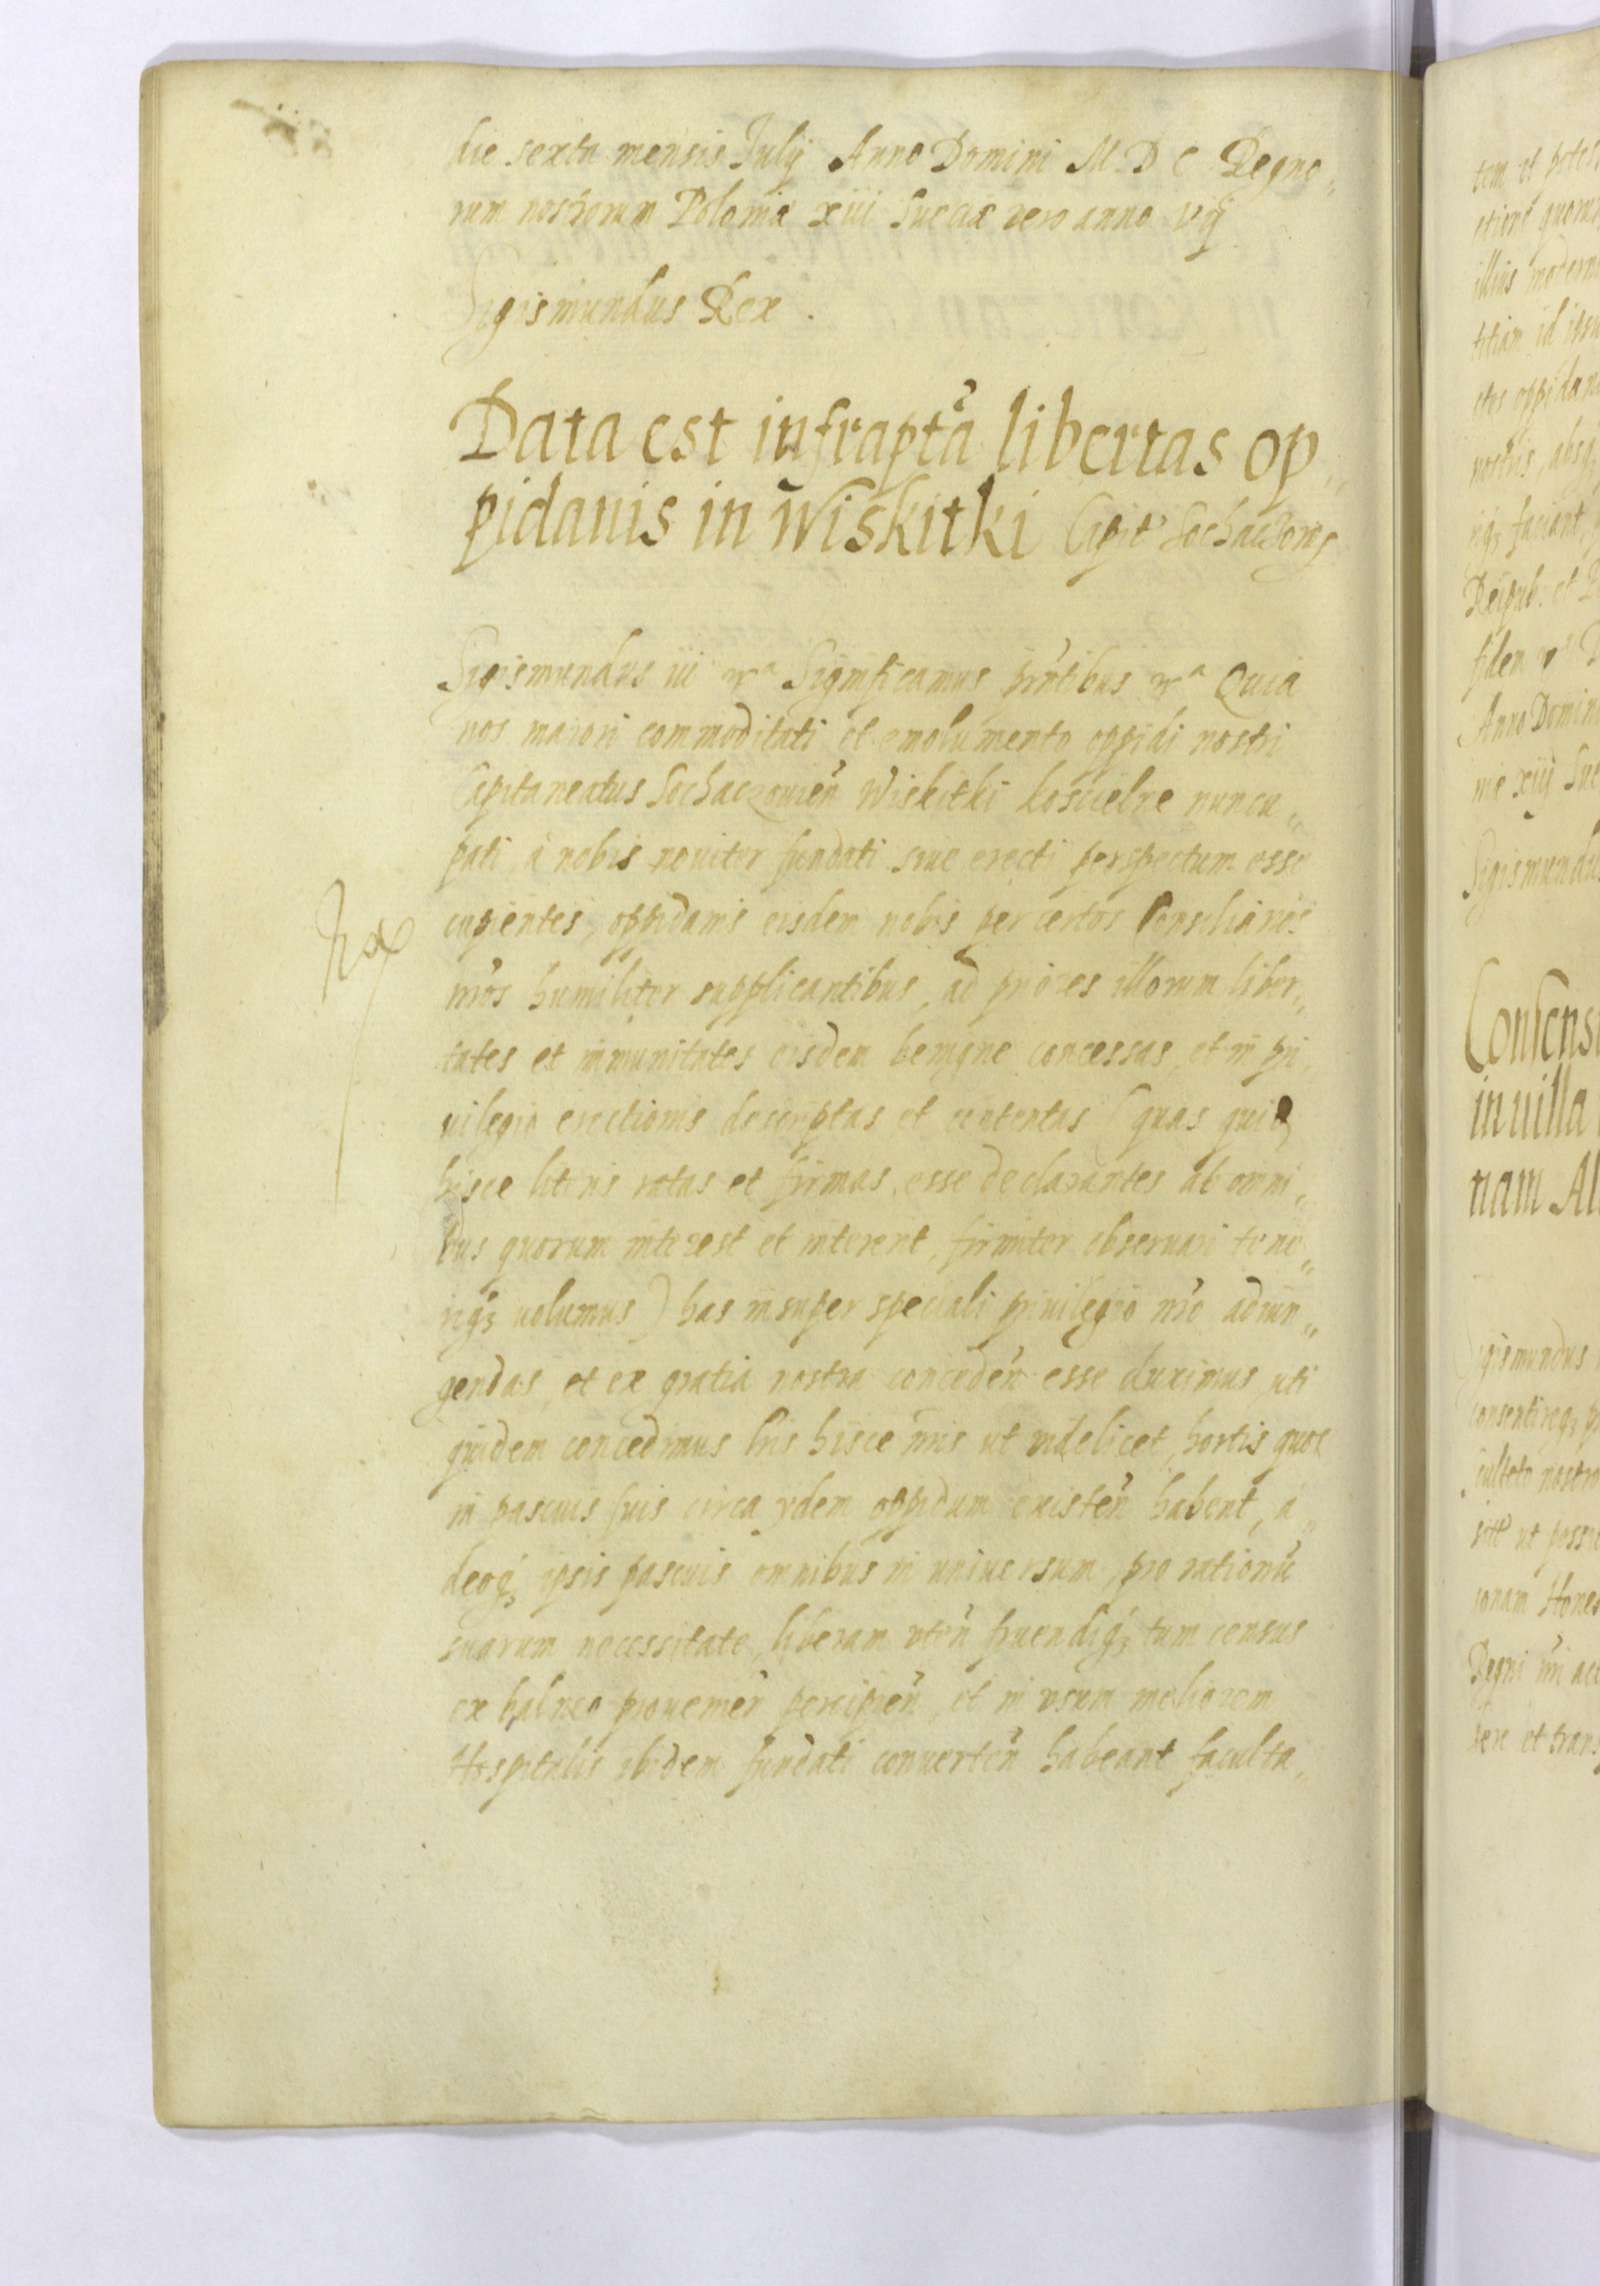 die sexta mensis Julij Anno Domini M.D.C. Regno„
rum nostrorum Poloniæ xiii Sueciæ vero anno vij
Sigismundus Rex.
Data est infrapta libertas op„
pidanis in Wiskitki Capit Sochaczowien
Sigismundus iii Significamus pntibus Quia
nos maiori commoditati et emolumento oppidi nostri
Capitaneatus Sochaczowien Wiskitki koscielne nuncu„
pati à nobis noviter fundati siue erecti perspectum esse
cupientes, oppidanis eisdem nobis per certos Consiliarios
nros humiliter supplicantibus, ad præces illorum liber„
tates et immunitates eisdem benigne concessas, et in pri„
uilegio erectionis descriptas et contentas (quas quidem
hisce literis ratas et firmas esse declarantes ab omni„
bus quorum interest et intererit, firmiter obseruari tene„
riq3 uolumus) has insuper speciali priuilegio nro adiun„
gendas, et ex gratia nostra conceden esse duximus uti
quidem concedimus lris hisce nris ut videlicet, hortis quos
in pascuis suis circa idem oppidum existen habent, a„
deoq3 ipsis pascuis omnibus in uniuersum, pro rationū
suarum necessitate, liberam vten fruendiq3 tum census
ex balneo prouenien percipien, et in vsum meliorem
Hospitalis ibidem fundati conuerten habeant faculta„
tem et potes
etient quorum
illius moderno
titiam id
etos oppidan
nostris, absq3
riq3 faciant,
Reipub: et
fidem
Anno Domini
niæ xiij Sue
Sigismundus
Consens
in uilla
nam Al
Sigismundus
consentireq3
nostro
ut possit
sonam Hones
Regni nri
dere et trans